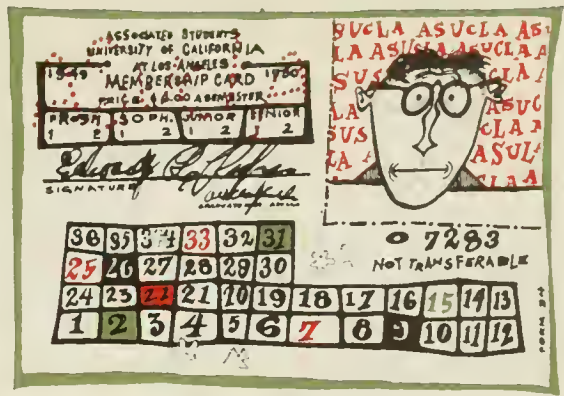 ASSOCIATED STUDENTS
UNIVERSITY OF CALIFORNIA
AT LOS ANGELES
1949 1950
MEMBERSHIP CARD
PRICE $ A SEMESTER
FROSH. SOPH. JUNIOR SENIOR
1 2 1 2 1 2 1 2
SIGNATURE
SUCLA ASUCLA AS
LA ASUCLA ASUCLA A
SUS CLA A
LA ASUC
SUS CLA A
LA A ASUL
CLAA
0 7283
NOT TRANSFERABLE
36 35 34 33 32 31
25 26 27 28 29 30
24 23 22 21 20 19 18 17 16 15 14 13
1 2 3 4 5 6 7 8 9 10 11 12